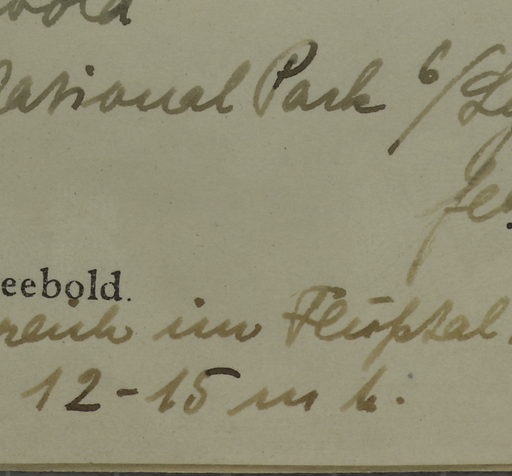 National Park 6/
eebold.
reich im Flußtal
12-15 m h.